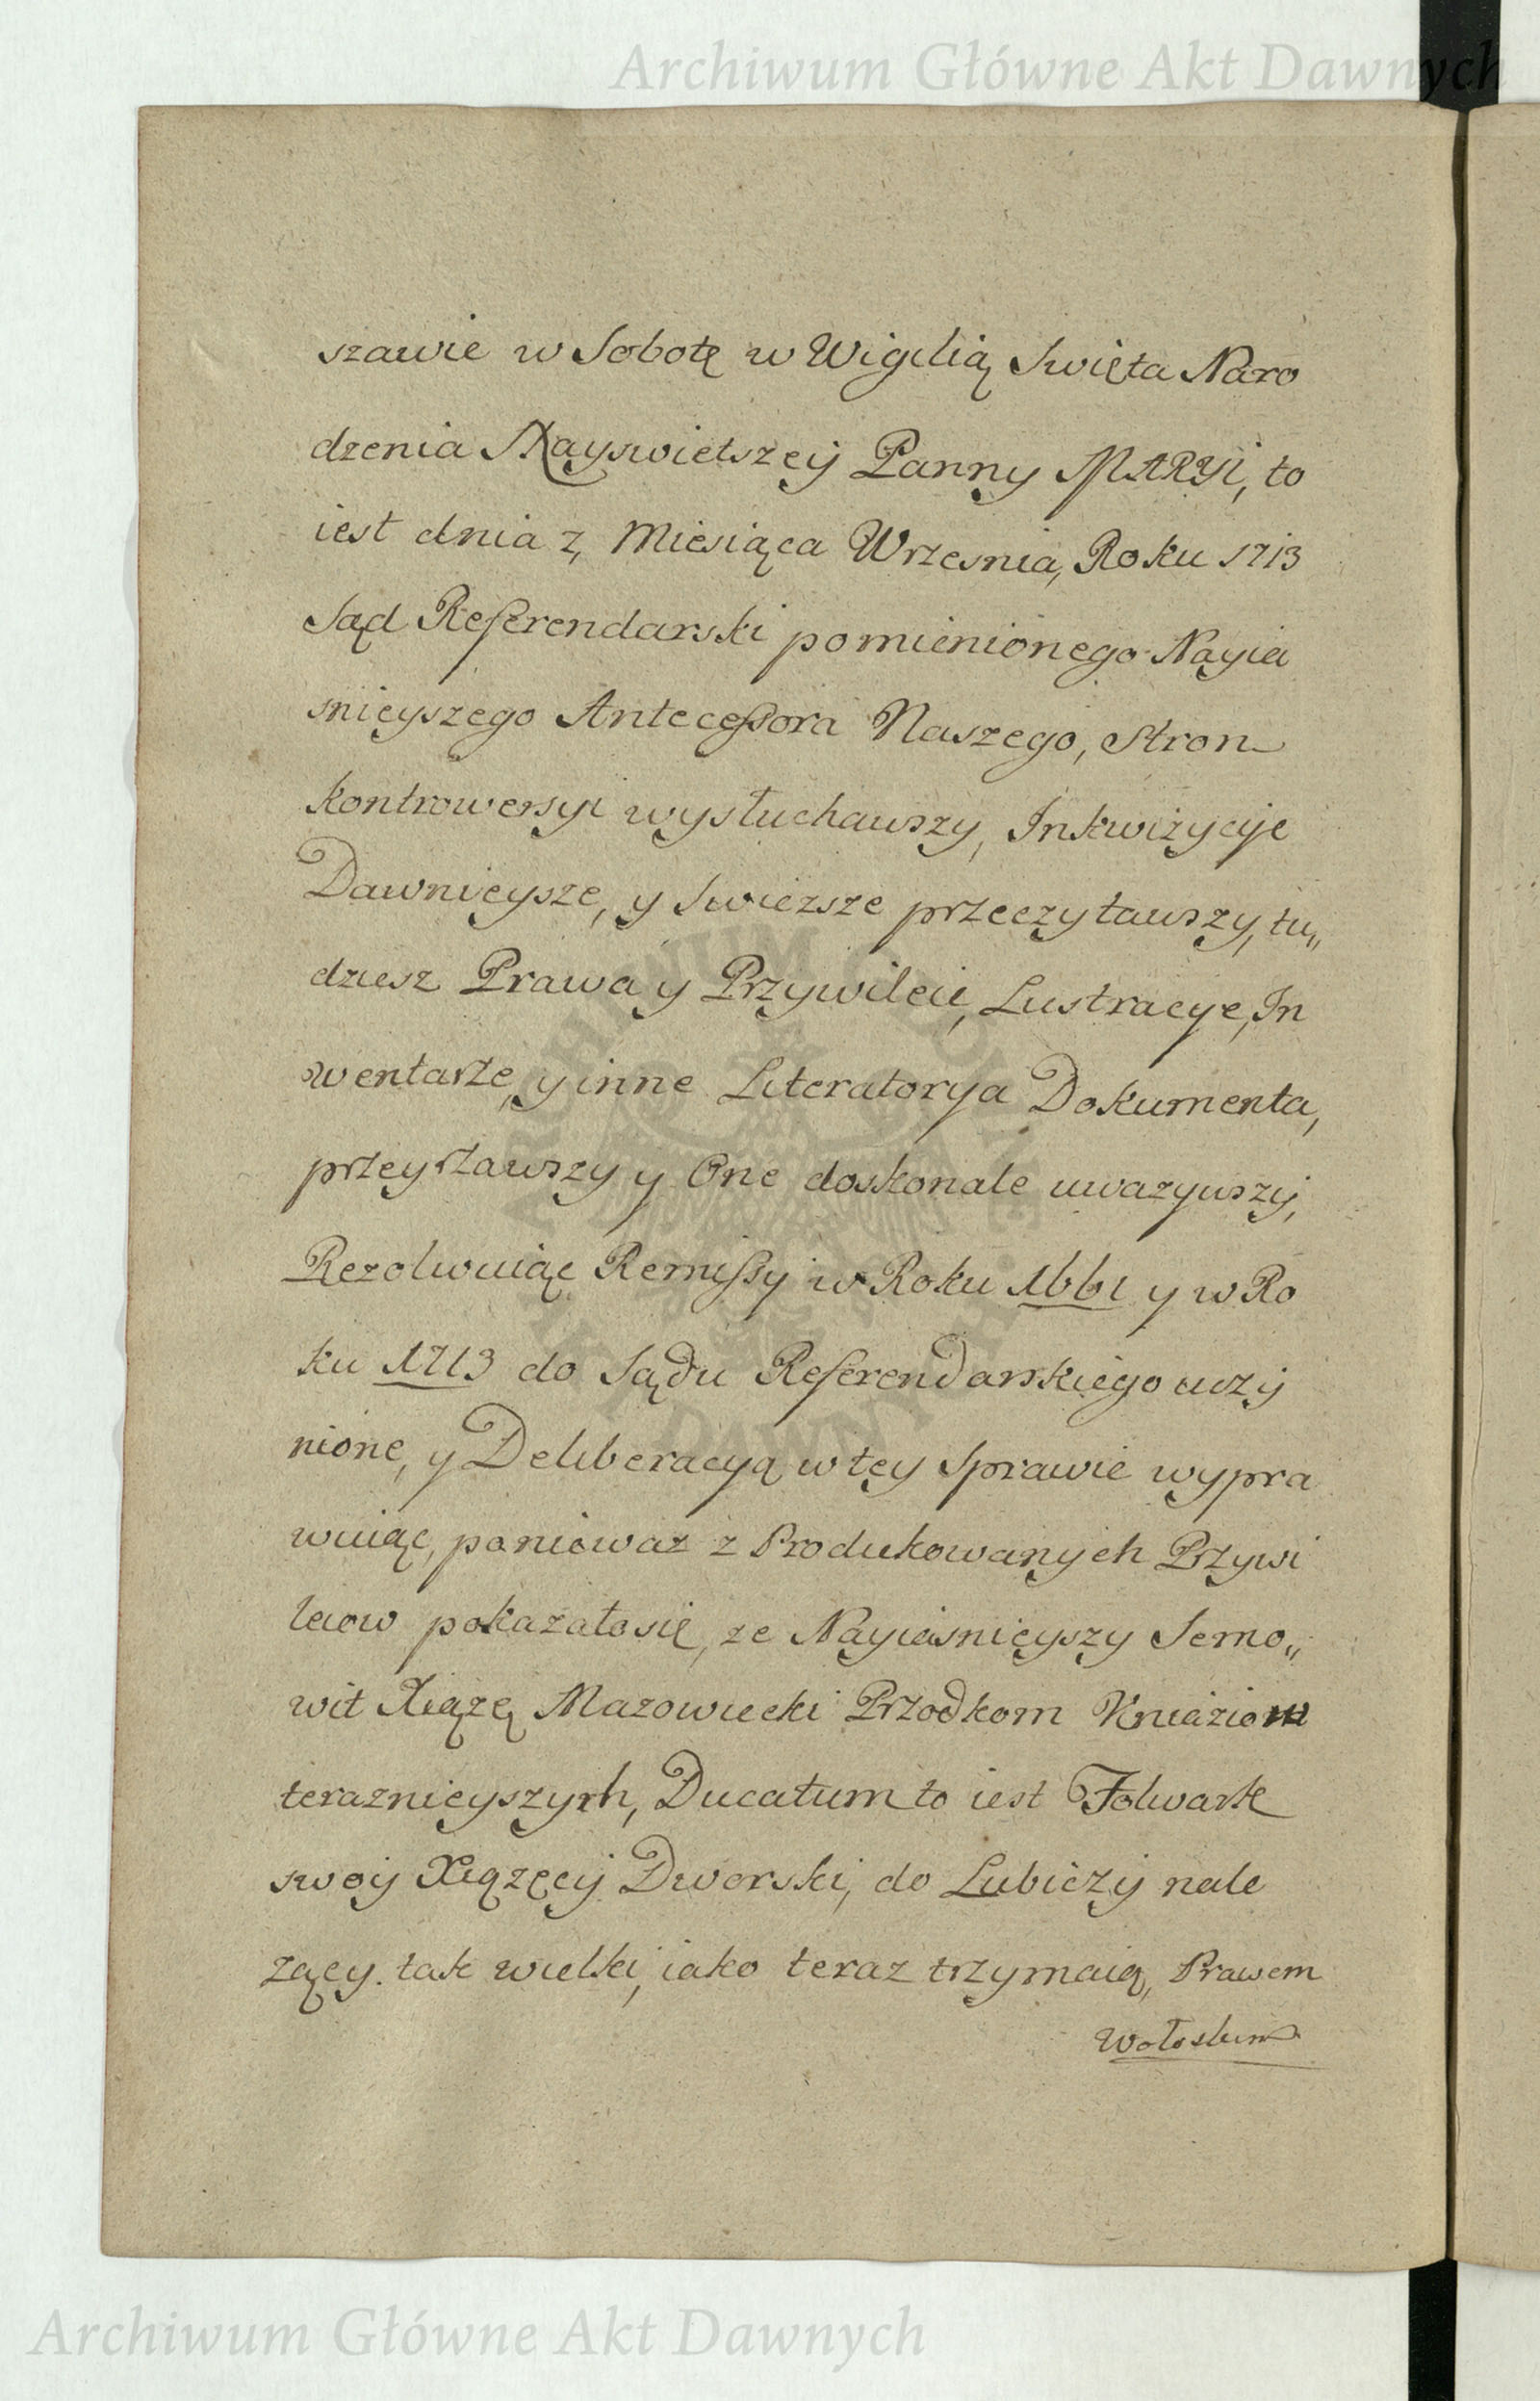 Archiwum Główne Akt Dawnych
szawie w Sobotę w Wigilią Swięta Naro
dzenia Nayswietszey Panny MARYI, to
iest dnia 7, Miesiąca Wrzesnia, Roku 1713
Sąd Referendarski pomienionego Nayia
snieyszego Antecessora Naszego, Stron
kontrowersyi wysłuchawszy, Inkwizycye
Dawnieysze, y Swiezsze przeczytawszy, tu„
dziesz Prawa y Przywileie, Lustracye, In
wentarze, y inne Literatorya Dokumenta,
przeyrzawszy y One doskonale uwazywszy,
Rezolwuiąc Remissy w Roku 1661 y w Ro
ku 1713 do Sądu Referendarskiego uczy
nione, y Deliberacyą w tey Sprawie wypra
wuiąc, poniewaz z Produkowanych Przywi
leiow pokazało się, ze Nayiasnieyszy Semo„
wit Xiązę Mazowiecki Przodkom Kniaziow
teraznieyszych, Ducatum to iest Folwark
swoy Xiązęcy Dworski, do Lubiczy nale
zący. tak wielki, iako teraz trzymaią, Prawem
Wołoskim
Archiwum Główne Akt Dawnych